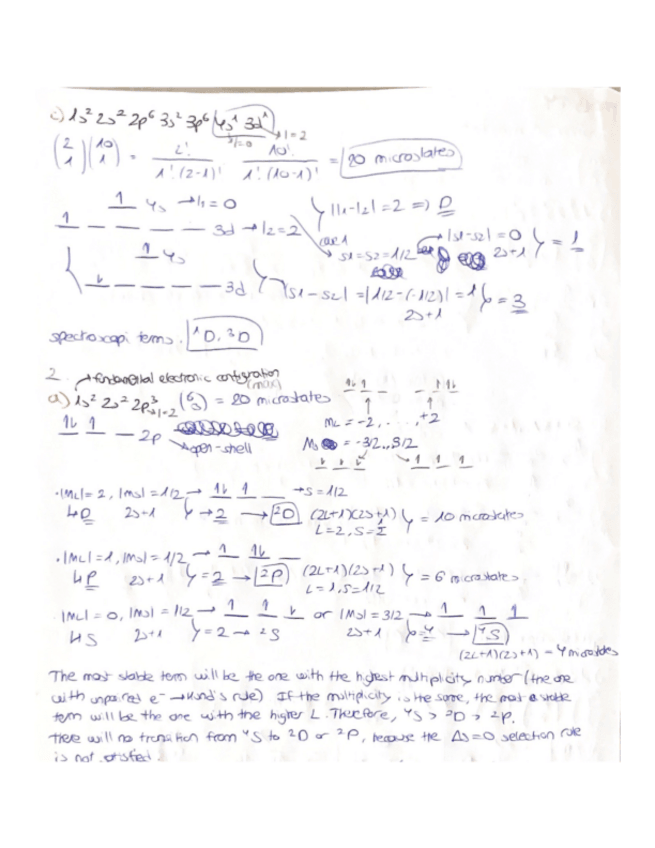 c) 1s² 2s² 2p⁶ 3s² 3p⁶ 4s¹ 3d¹
l=0 → l=2
(2 1)(10 1) = 2! / 1!(2-1)! 10! / 1!(10-1)! = 20 microstates
1 4s → l1 = 0 } |l1-l2| = 2 => D
1 _ _ _ _ 3d → l2 = 2
case 1 s1 = s2 = 1/2 → |s1-s2| = 0 } = 1
2s+1
1 4s
_ _ _ _ 3d } |s1-s2| = |1/2-(-1/2)| = 1 } = 3
2s+1
spectroscopi terms. ¹D, ³D
2. → fundamental electronic configuration
(max)
a) 1s² 2s² 2p³ → l=2 (6 3) = 20 microstates
1↓ 1 _ 2p
→ open-shell
ML = -2, . . . , +2
Ms = -3/2..3/2
· |ML| = 2, |Ms| = 1/2 → 1↓ 1 _ → S = 1/2
↳ D 2s+1 } → 2 → ²D (2L+1)(2S+1) } = 10 microstates
L=2, S=1/2
· |ML| = 1, |Ms| = 1/2 → 1 1↓ _
↳ P 2s+1 } = 2 → ²P (2L+1)(2S+1) } = 6 microstates
L=1, S=1/2
|ML| = 0, |Ms| = 1/2 → 1 1 ↓ or |Ms| = 3/2 → 1 1 1
↳ S 2s+1 } = 2 → ²S 2s+1 } = 4 → ⁴S
(2L+1)(2S+1) = 4 microstates
The most stable term will be the one with the highest multiplicity number (the one
with unpaired e⁻ → Hund's rule) If the multiplicity is the same, the most stable
term will be the one with the higher L. Therefore, ⁴S > ²D > ²P.
there will no transition from ⁴S to ²D or ²P, because the ΔS=0 selection rule
is not satisfied.